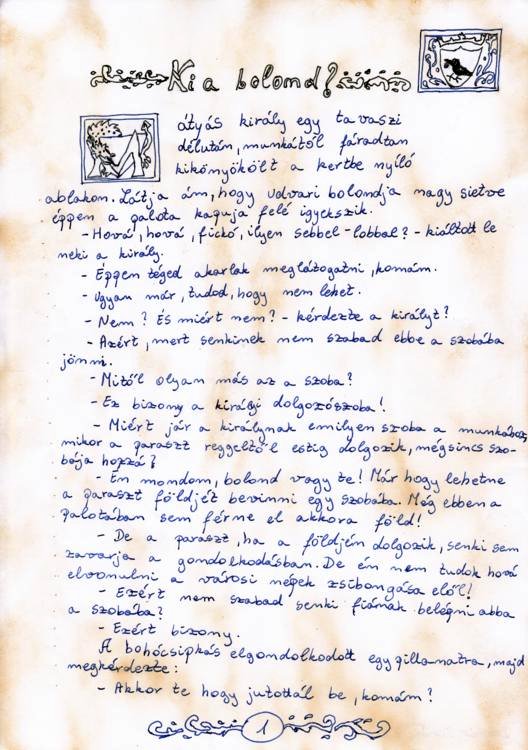 Ki a bolond?
Mátyás király egy tavaszi
délután, munkától fáradtan
kikönyökölt a kertbe nyíló
ablakon. Látja ám, hogy udvari bolondja nagy sietve
éppen a palota kapuja felé igyekszik.
- Hová, hová, fickó, ilyen sebbel-lobbal? - kiáltott le
neki a király.
- Éppen téged akarlak meglátogatni, komám.
- Ugyan már, tudod, hogy nem lehet.
- Nem? És miért nem? - kérdezte a királyt?
- Azért, mert senkinek nem szabad ebbe a szobába
jönni.
- Mitől olyan más az a szoba?
- Ez bizony a királyi dolgozószoba!
- Miért jár a királynak emilyen szoba a munkához,
mikor a paraszt reggeltől estig dolgozik, mégsincs szo-
bája hozzá?
- Én mondom, bolond vagy te! Már hogy lehetne
a paraszt földjét bevinni egy szobába. Még ebben a
palotában sem férne el akkora föld!
- De a paraszt, ha a földjén dolgozik, senki sem
zavarja a gondolkodásban. De én nem tudok hová
elvonulni a városi népek zsibongása elől!
- Ezért nem szabad senki fiának belépni abba
a szobába?
- Ezért bizony.
A bohócsipkás elgondolkodott egy pillanatra, majd
megkérdezte:
- Akkor te hogy jutottál be, komám?
1